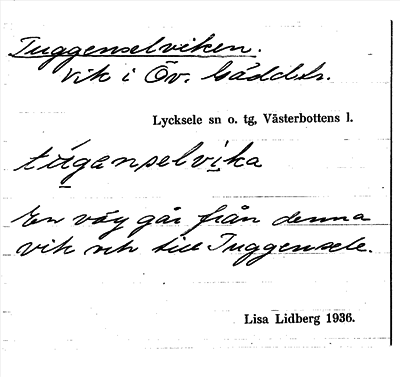 Tuggenselviken.
Vik i Öv. Gäddtr.
Lycksele sn o. tg, Västerbottens l.
túgənselvika
En väg går från denna
vik och till Tuggensele.
Lisa Lidberg 1936.